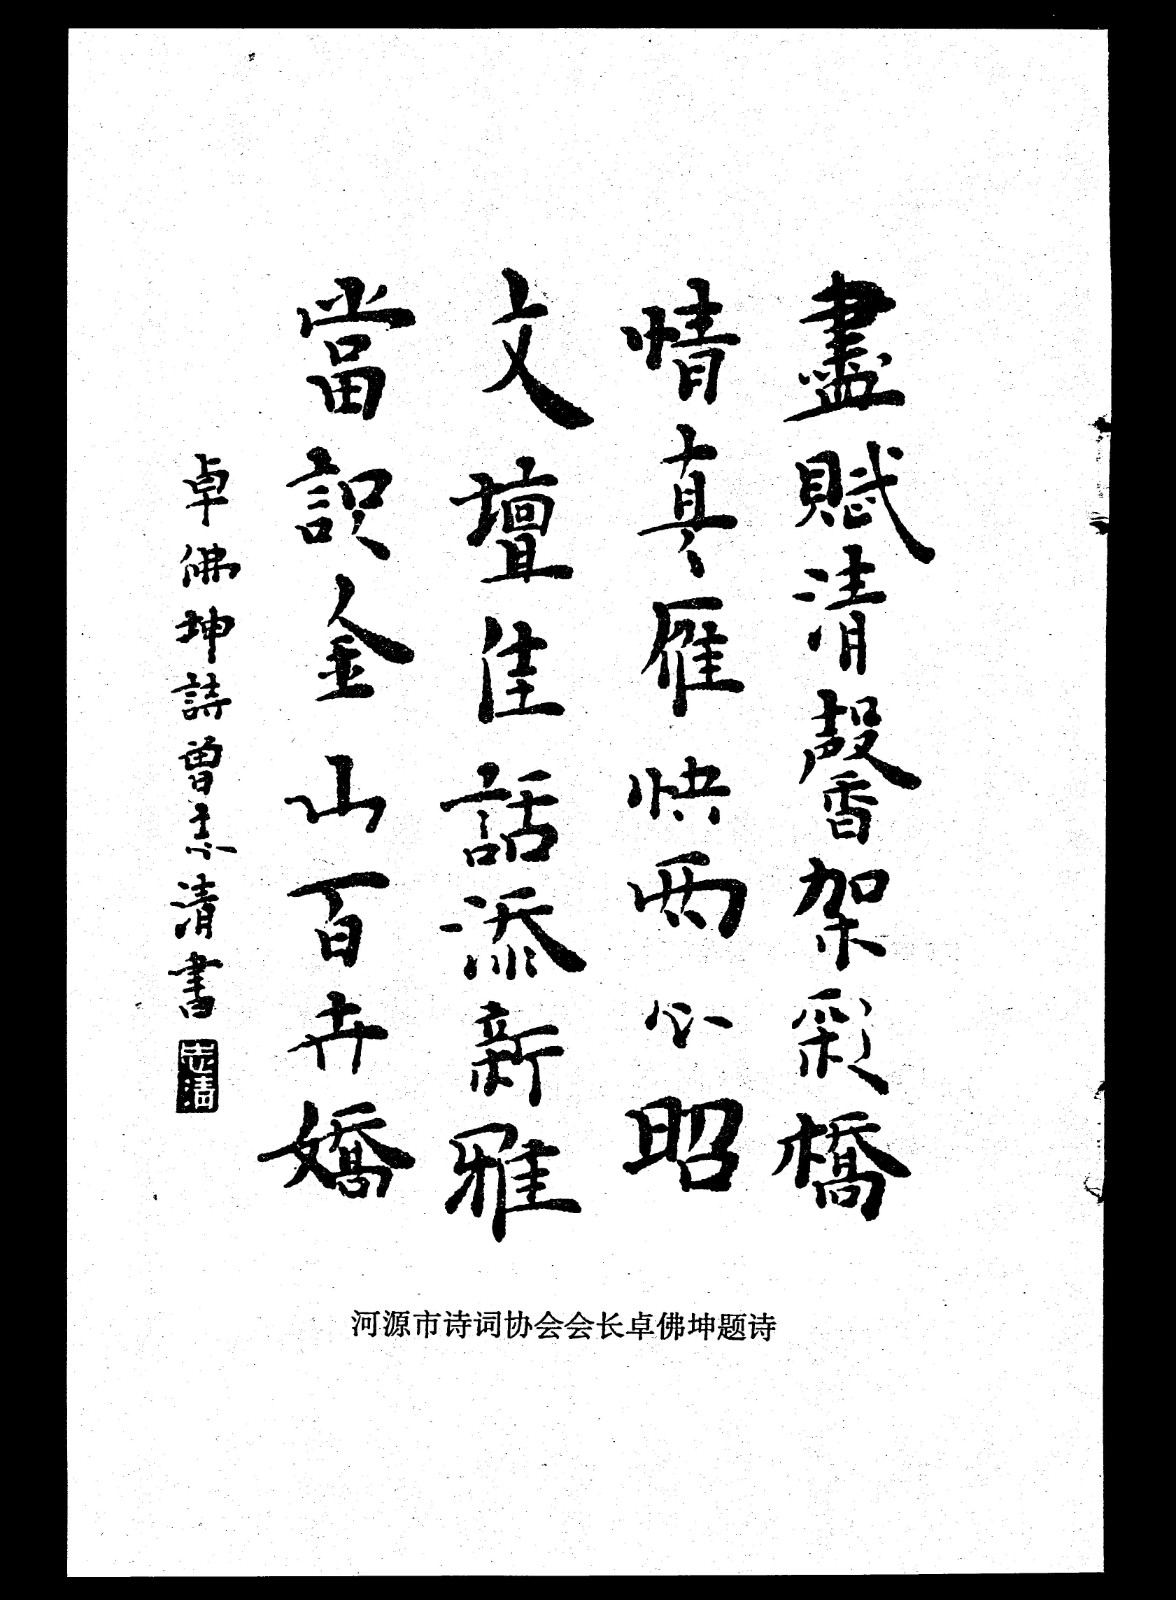 盡賦清馨架彩橋
情真雁快兩心昭
文壇佳話添新雅
當识金山百卉嬌
卓佛坤詩曾志清書
志清
河源市诗词协会会长卓佛坤题诗